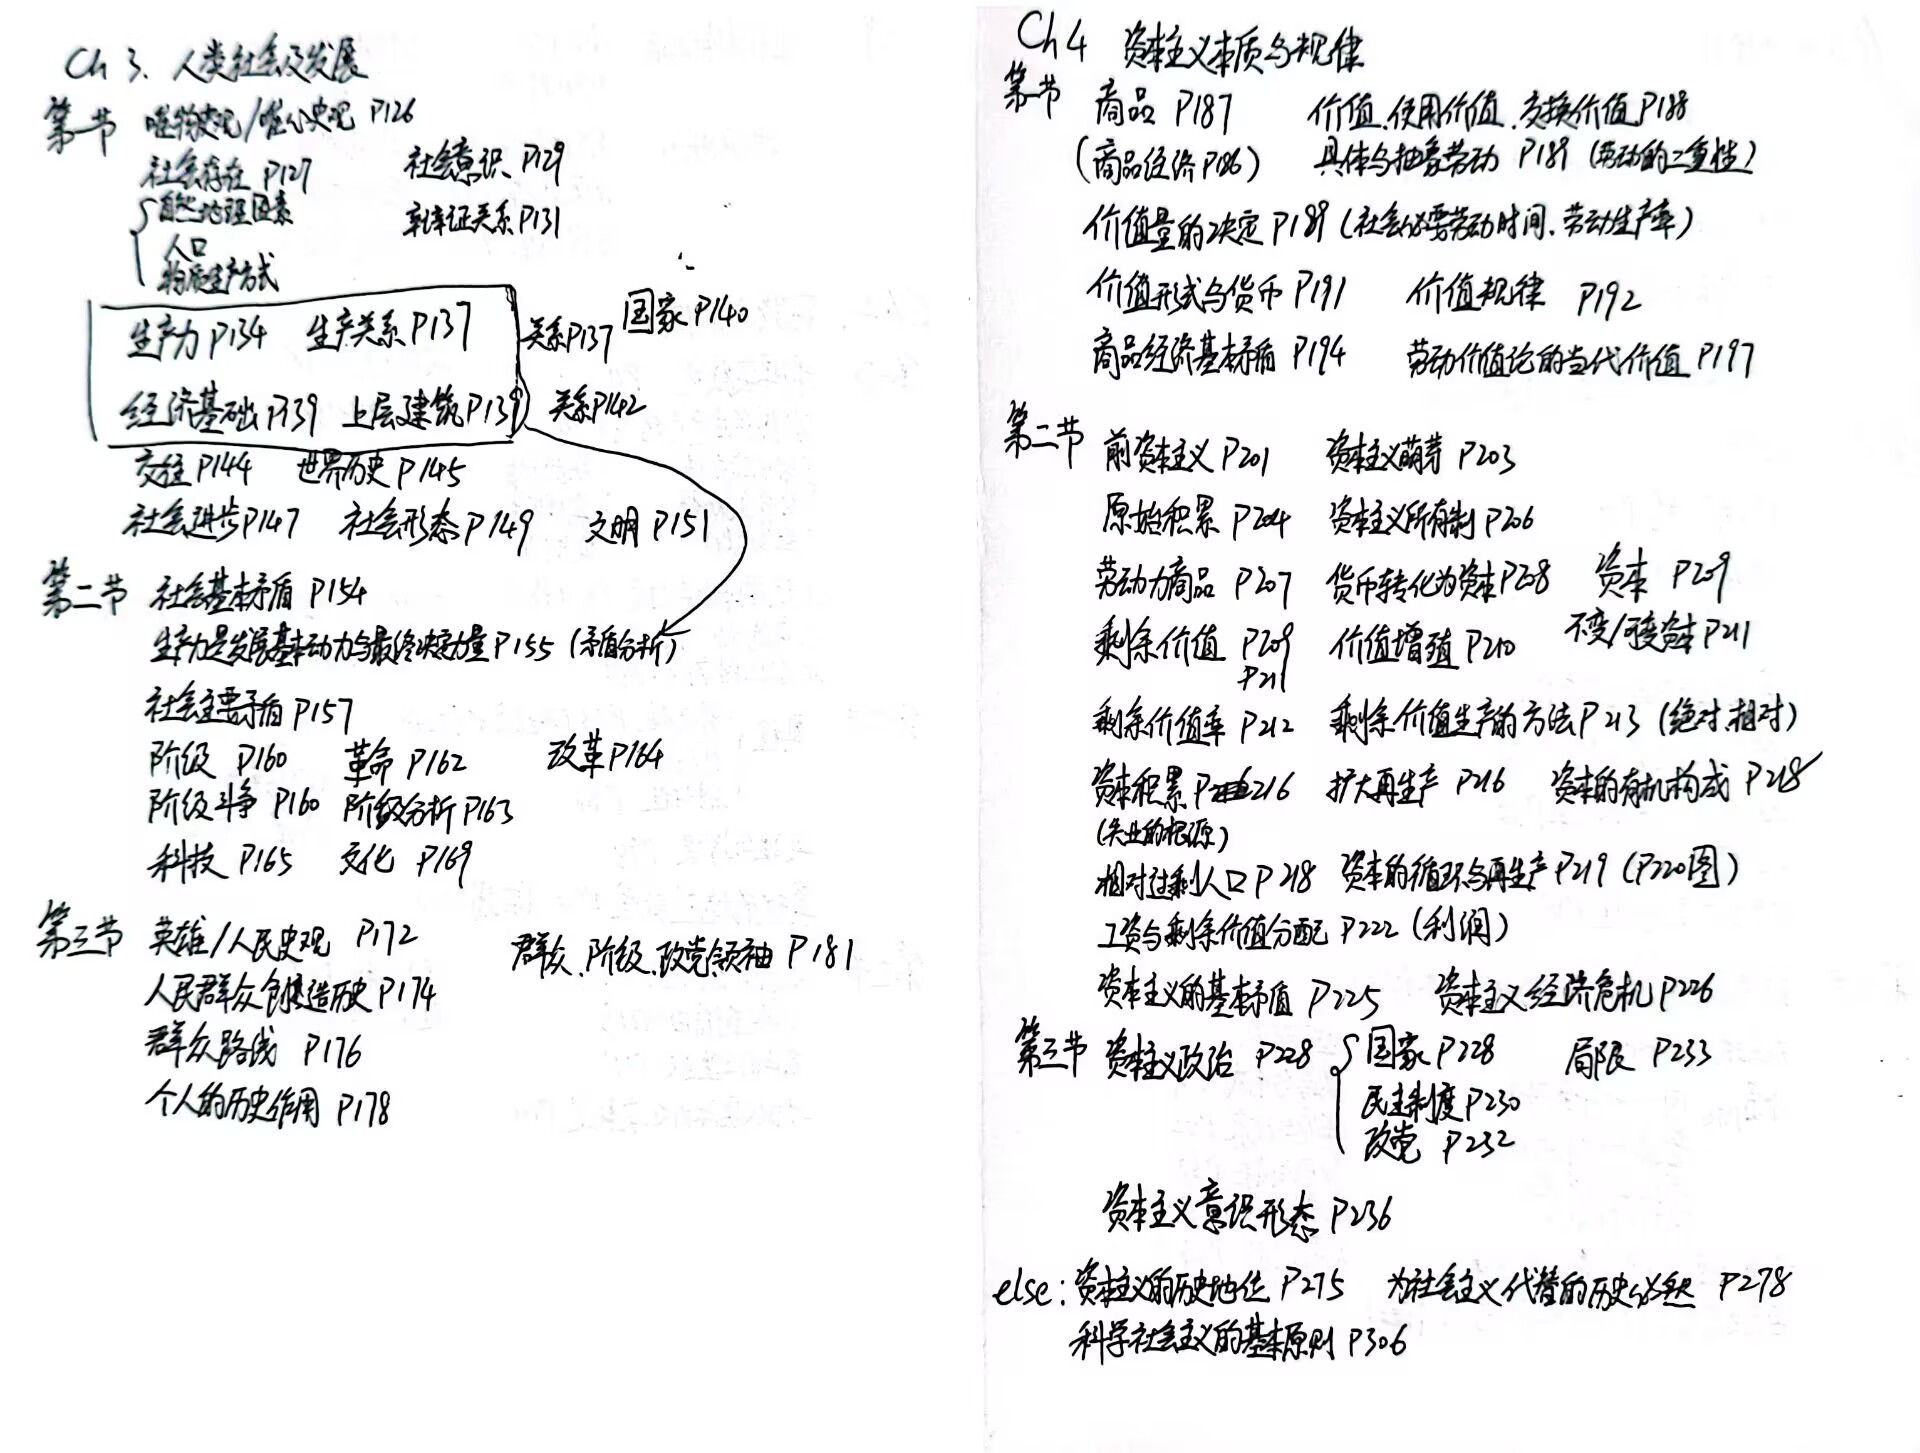 Ch 3. 人类社会及发展
第一节 唯物史观/唯心史观 P126
社会存在 P127 社会意识 P129
自然地理因素 辩证关系 P131
人口
物质生产方式
生产力 P134 生产关系 P137 关系 P137 国家 P140
经济基础 P139 上层建筑 P139 关系 P142
交往 P144 世界历史 P145
社会进步 P147 社会形态 P149 文明 P151
第二节 社会基本矛盾 P154
生产力是发展基本动力与最终决定力量 P155 (矛盾分析)
社会主要矛盾 P157
阶级 P160 革命 P162 改革 P164
阶级斗争 P160 阶级分析 P163
科技 P165 文化 P169
第三节 英雄/人民史观 P172 群众、阶级、政党、领袖 P181
人民群众创造历史 P174
群众路线 P176
个人的历史作用 P178
Ch 4 资本主义本质与规律
第一节 商品 P187 价值、使用价值、交换价值 P188
(商品经济 P186) 具体与抽象劳动 P189 (劳动的二重性)
价值量的决定 P189 (社会必要劳动时间、劳动生产率)
价值形式与货币 P191 价值规律 P192
商品经济基本矛盾 P194 劳动价值论的当代价值 P197
第二节 前资本主义 P201 资本主义萌芽 P203
原始积累 P204 资本主义所有制 P206
劳动力商品 P207 货币转化为资本 P208 资本 P209
剩余价值 P209 价值增殖 P210 不变/可变资本 P211
P211
剩余价值率 P212 剩余价值生产的方法 P213 (绝对、相对)
资本积累 P216 扩大再生产 P216 资本的有机构成 P218
(失业的根源)
相对过剩人口 P218 资本的循环与再生产 P219 (P220图)
工资与剩余价值分配 P222 (利润)
资本主义的基本矛盾 P225 资本主义经济危机 P226
第三节 资本主义政治 P228 国家 P228 局限 P233
民主制度 P230
政党 P232
资本主义意识形态 P236
else: 资本主义的历史地位 P275 为社会主义代替的历史必然 P278
科学社会主义的基本原则 P306